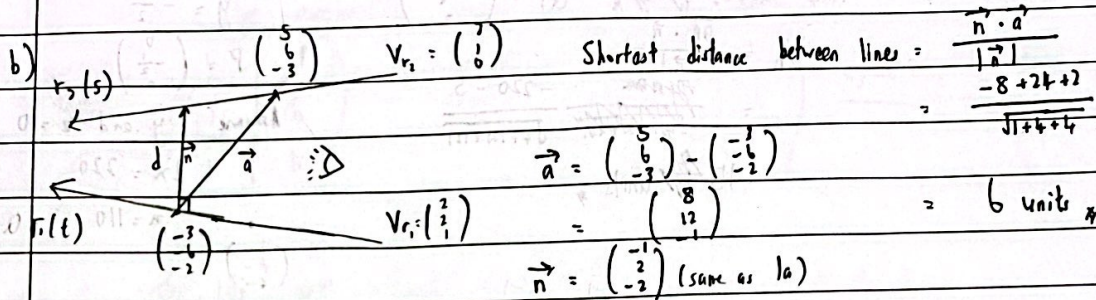 b)
r₂(s)
(5 6 -3)
V_r₂ = ( 1 0)
Shortest distance between lines = n⃗ · a⃗ / |n⃗|
= -8 + 24 + 2 / √1+4+4
= 6 units
d n⃗ a⃗
a⃗ = (5 6 -3) - (-3 -6 -2)
= (8 12 -1)
r₁(t)
(-3 -6 -2)
V_r₁ = (2 2 1)
n⃗ = (-1 2 -2) (same as 1a)